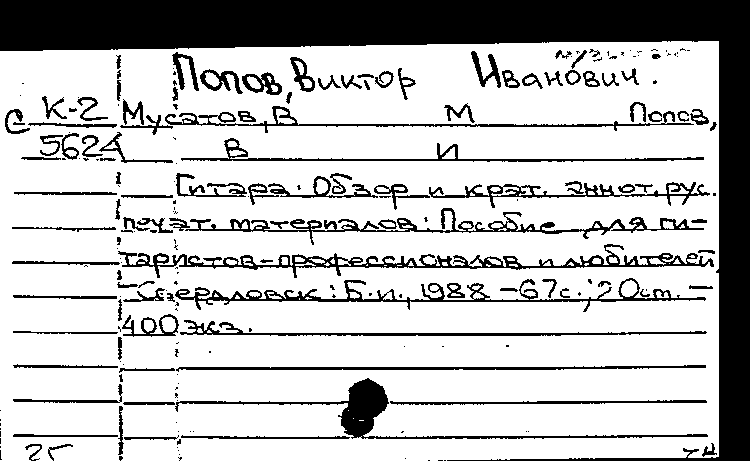 Попов, Виктор Иванович.
С К-2 Мусатов, В М , Попов,
5624 В И
Гитара: Обзор и крат. аннот. рус.
печат. материалов: Пособие для ги-
таристов-профессионалов и любителей
-Свердловск: Б.и., 1988 -67с.; 20см. -
400экз.
25